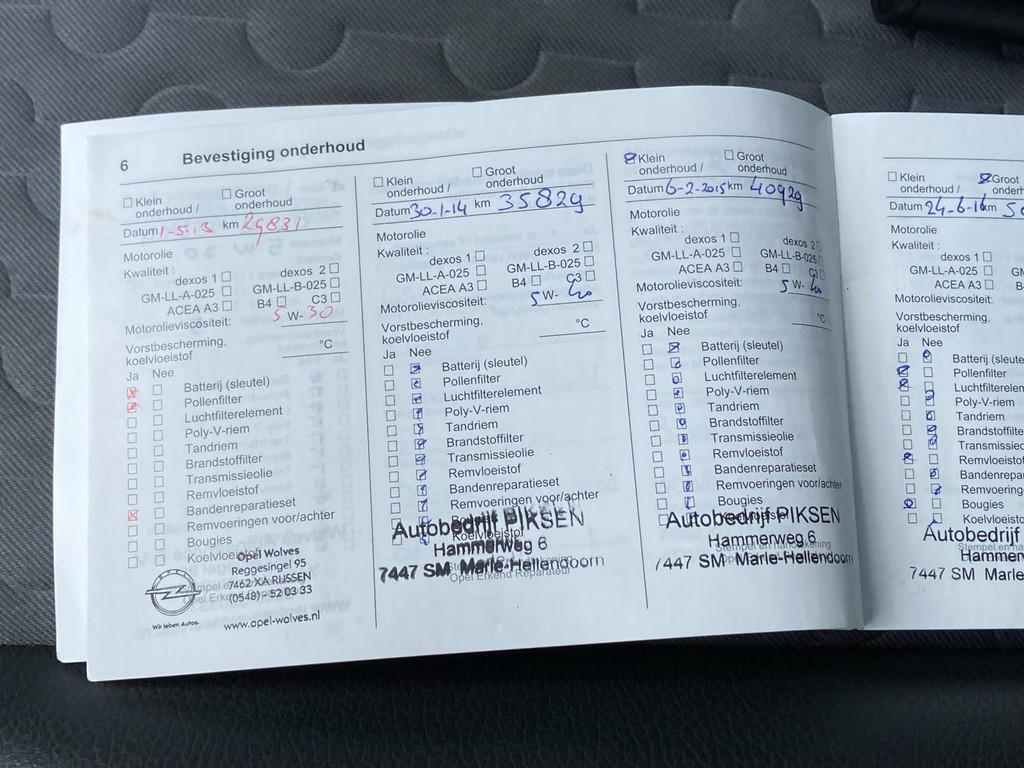 6 Bevestiging onderhoud
☐ Klein onderhoud /
☐ Groot onderhoud
Datum 1-5-13 km 29831
Motorolie
Kwaliteit :
dexos 1 ☐ dexos 2 ☐
GM-LL-A-025 ☐ GM-LL-B-025 ☐
ACEA A3 ☐ B4 ☐ C3 ☐
Motorolieviscositeit: 5 W- 30
Vorstbescherming,
koelvloeistof °C
Ja Nee
Batterij (sleutel)
Pollenfilter
Luchtfilterelement
Poly-V-riem
Tandriem
Brandstoffilter
Transmissieolie
Remvloeistof
Bandenreparatieset
Remvoeringen voor/achter
Bougies
Koelvloeistof
Opel Wolves
Reggesingel 95
7462 XA RIJSSEN
(0548) - 52 03 33
Wir leben Autos.
www.opel-wolves.nl
☐ Klein onderhoud /
☐ Groot onderhoud
Datum 30-1-14 km 35829
Motorolie
Kwaliteit :
dexos 1 ☐ dexos 2 ☐
GM-LL-A-025 ☐ GM-LL-B-025 ☐
ACEA A3 ☐ B4 ☐ C3 ☐
Motorolieviscositeit: 5 W- 40
Vorstbescherming,
koelvloeistof °C
Ja Nee
Batterij (sleutel)
Pollenfilter
Luchtfilterelement
Poly-V-riem
Tandriem
Brandstoffilter
Transmissieolie
Remvloeistof
Bandenreparatieset
Remvoeringen voor/achter
Koelvloeistof
Autobedrijf PIKSEN
Hammerweg 6
7447 SM Marle-Hellendoorn
Opel Erkend Reparateur
Klein onderhoud /
☐ Groot onderhoud
Datum 6-2-2015 km 40929
Motorolie
Kwaliteit :
dexos 1 ☐ dexos 2 ☐
GM-LL-A-025 ☐ GM-LL-B-025
ACEA A3 ☐ B4 ☐ C3 ☐
Motorolieviscositeit: 5 W- 40
Vorstbescherming,
koelvloeistof °C
Ja Nee
Batterij (sleutel)
Pollenfilter
Luchtfilterelement
Poly-V-riem
Tandriem
Brandstoffilter
Transmissieolie
Remvloeistof
Bandenreparatieset
Remvoeringen voor/achter
Bougies
Autobedrijf PIKSEN
Hammerweg 6
7447 SM Marle-Hellendoorn
☐ Klein onderhoud /
Groot
Datum 24-6-16 km
Motorolie
Kwaliteit :
dexos 1 ☐
GM-LL-A-025 ☐
ACEA A3 ☐
Motorolieviscositeit:
Vorstbescherming,
koelvloeistof
Ja Nee
Batterij (sleute
Pollenfilter
Luchtfilterelem
Poly-V-riem
Tandriem
Brandstoffilte
Transmissieo
Remvloeistof
Bandenrepara
Remvoering
Bougies
Koelvloeistof
Autobedrijf
Hammer
7447 SM Marle